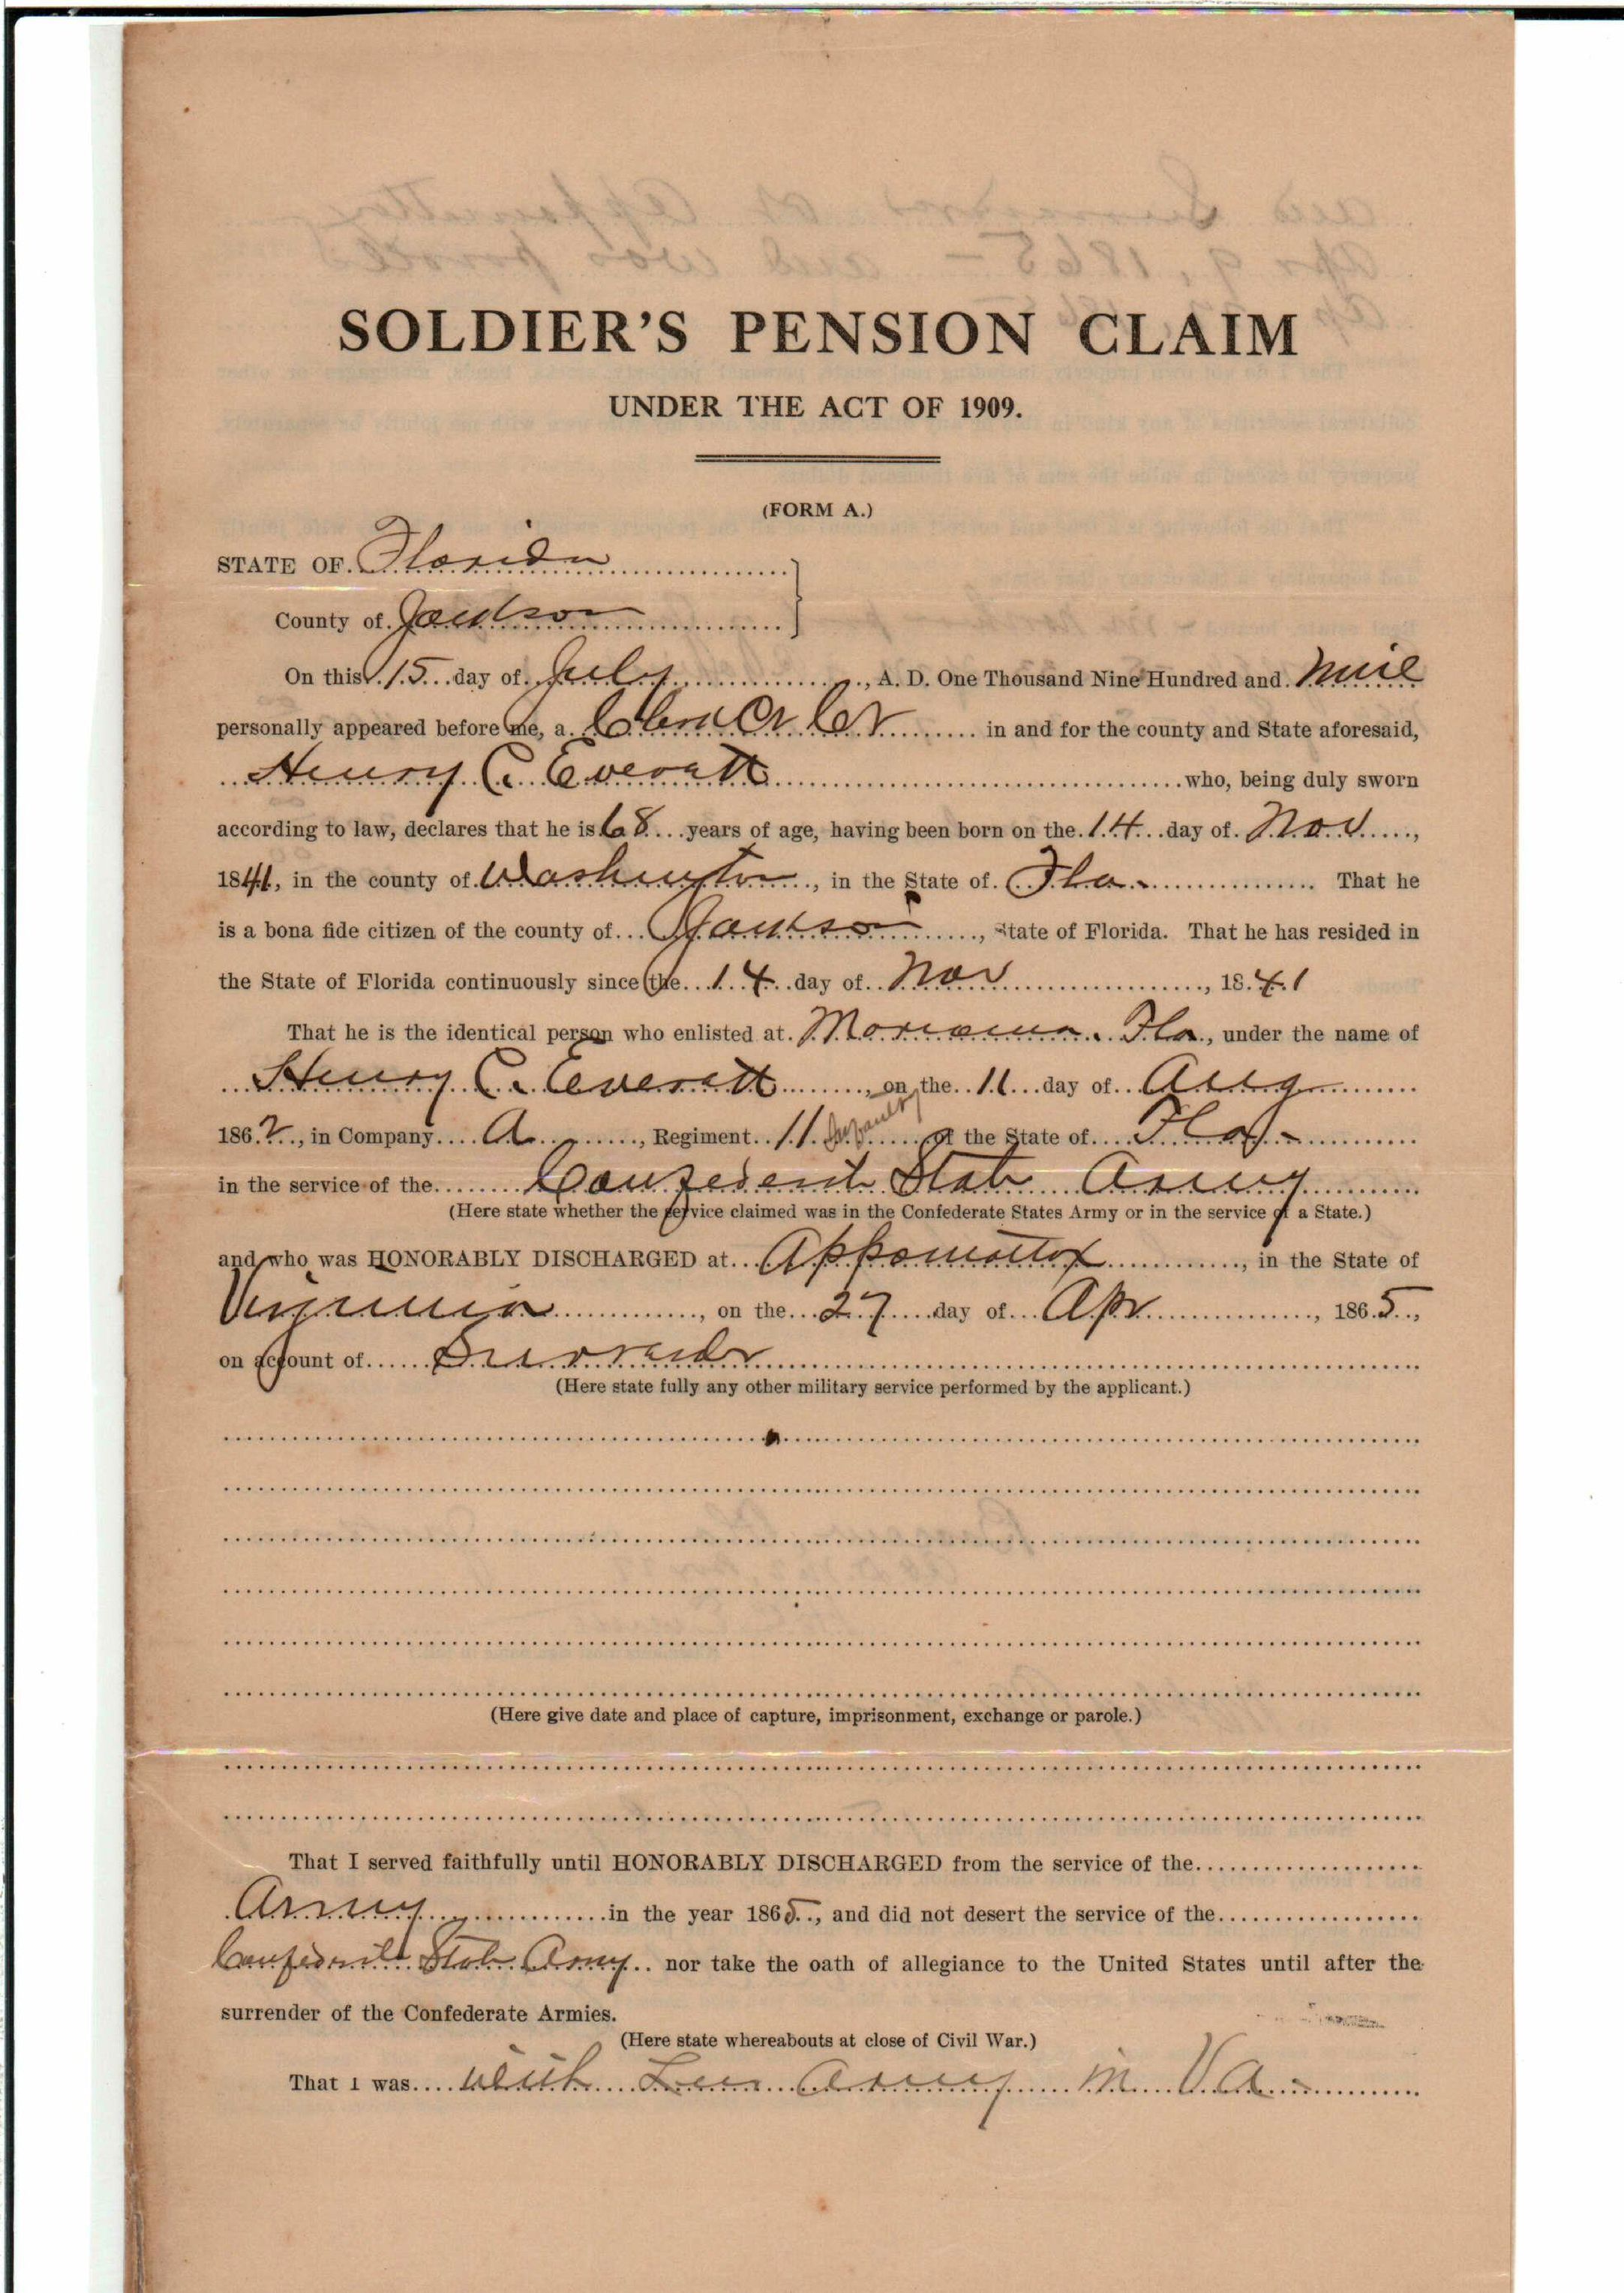 SOLDIER'S PENSION CLAIM
UNDER THE ACT OF 1909.
(FORM A.)
STATE OF Florida
County of Jackson
On this 15 day of July, A. D. One Thousand Nine Hundred and Nine
personally appeared before me, a Clerk Cir Ct in and for the county and State aforesaid,
Henry C. Everett who, being duly sworn
according to law, declares that he is 68 years of age, having been born on the 14 day of Nov,
1841, in the county of Washington, in the State of Fla. That he
is a bona fide citizen of the county of Jackson, State of Florida. That he has resided in
the State of Florida continuously since the 14 day of Nov, 1841
That he is the identical person who enlisted at Marianna Fla, under the name of
Henry C. Everett, on the 11 day of Aug
1862, in Company A, Regiment 11 Infantry of the State of Fla-
in the service of the Confederate State Army
(Here state whether the service claimed was in the Confederate States Army or in the service of a State.)
and who was HONORABLY DISCHARGED at Appomattox, in the State of
Virginia, on the 27 day of Apr, 1865,
on account of Surrender
(Here state fully any other military service performed by the applicant.)
(Here give date and place of capture, imprisonment, exchange or parole.)
That I served faithfully until HONORABLY DISCHARGED from the service of the
Army in the year 1865, and did not desert the service of the
Confederate State Army nor take the oath of allegiance to the United States until after the
surrender of the Confederate Armies.
(Here state whereabouts at close of Civil War.)
That I was with Lee Army in Va-